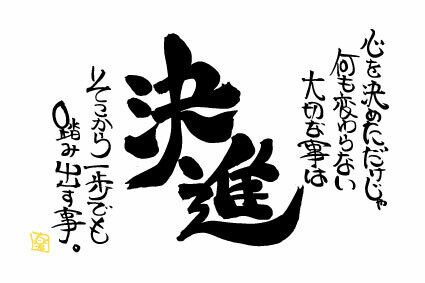 心を決めただけじゃ
何も変わらない
大切な事は
決進
そこから一歩でも
踏み出す事。